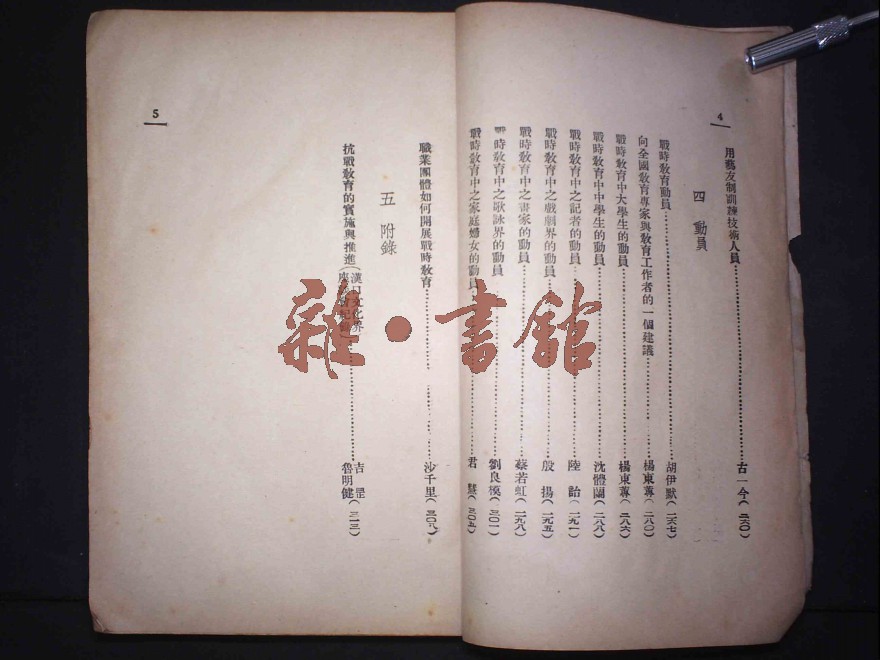 4
用藝友制訓練技術人員……古一今(二六〇)
四 動員
戰時教育動員……胡伊默(二六七)
向全國教育專家與教育工作者的一個建議……楊東蓴(二八〇)
戰時教育中大學生的動員……楊東蓴(二八六)
戰時教育中中學生的動員……沈體蘭(二八八)
戰時教育中之記者的動員……陸詒(二九一)
戰時教育中之戲劇界的動員……殷揚(二九五)
戰時教育中之畫家的動員……蔡若虹(二九八)
戰時教育中之歌詠界的動員……劉良模(三〇一)
戰時教育中之家庭婦女的動員……君慧(三〇五)
職業團體如何開展戰時教育……沙千里(三〇八)
五 附錄
抗戰教育的實施與推進(漢口文化界座談會紀錄)……吉 魯明健(三一三)
5
雜·書舘